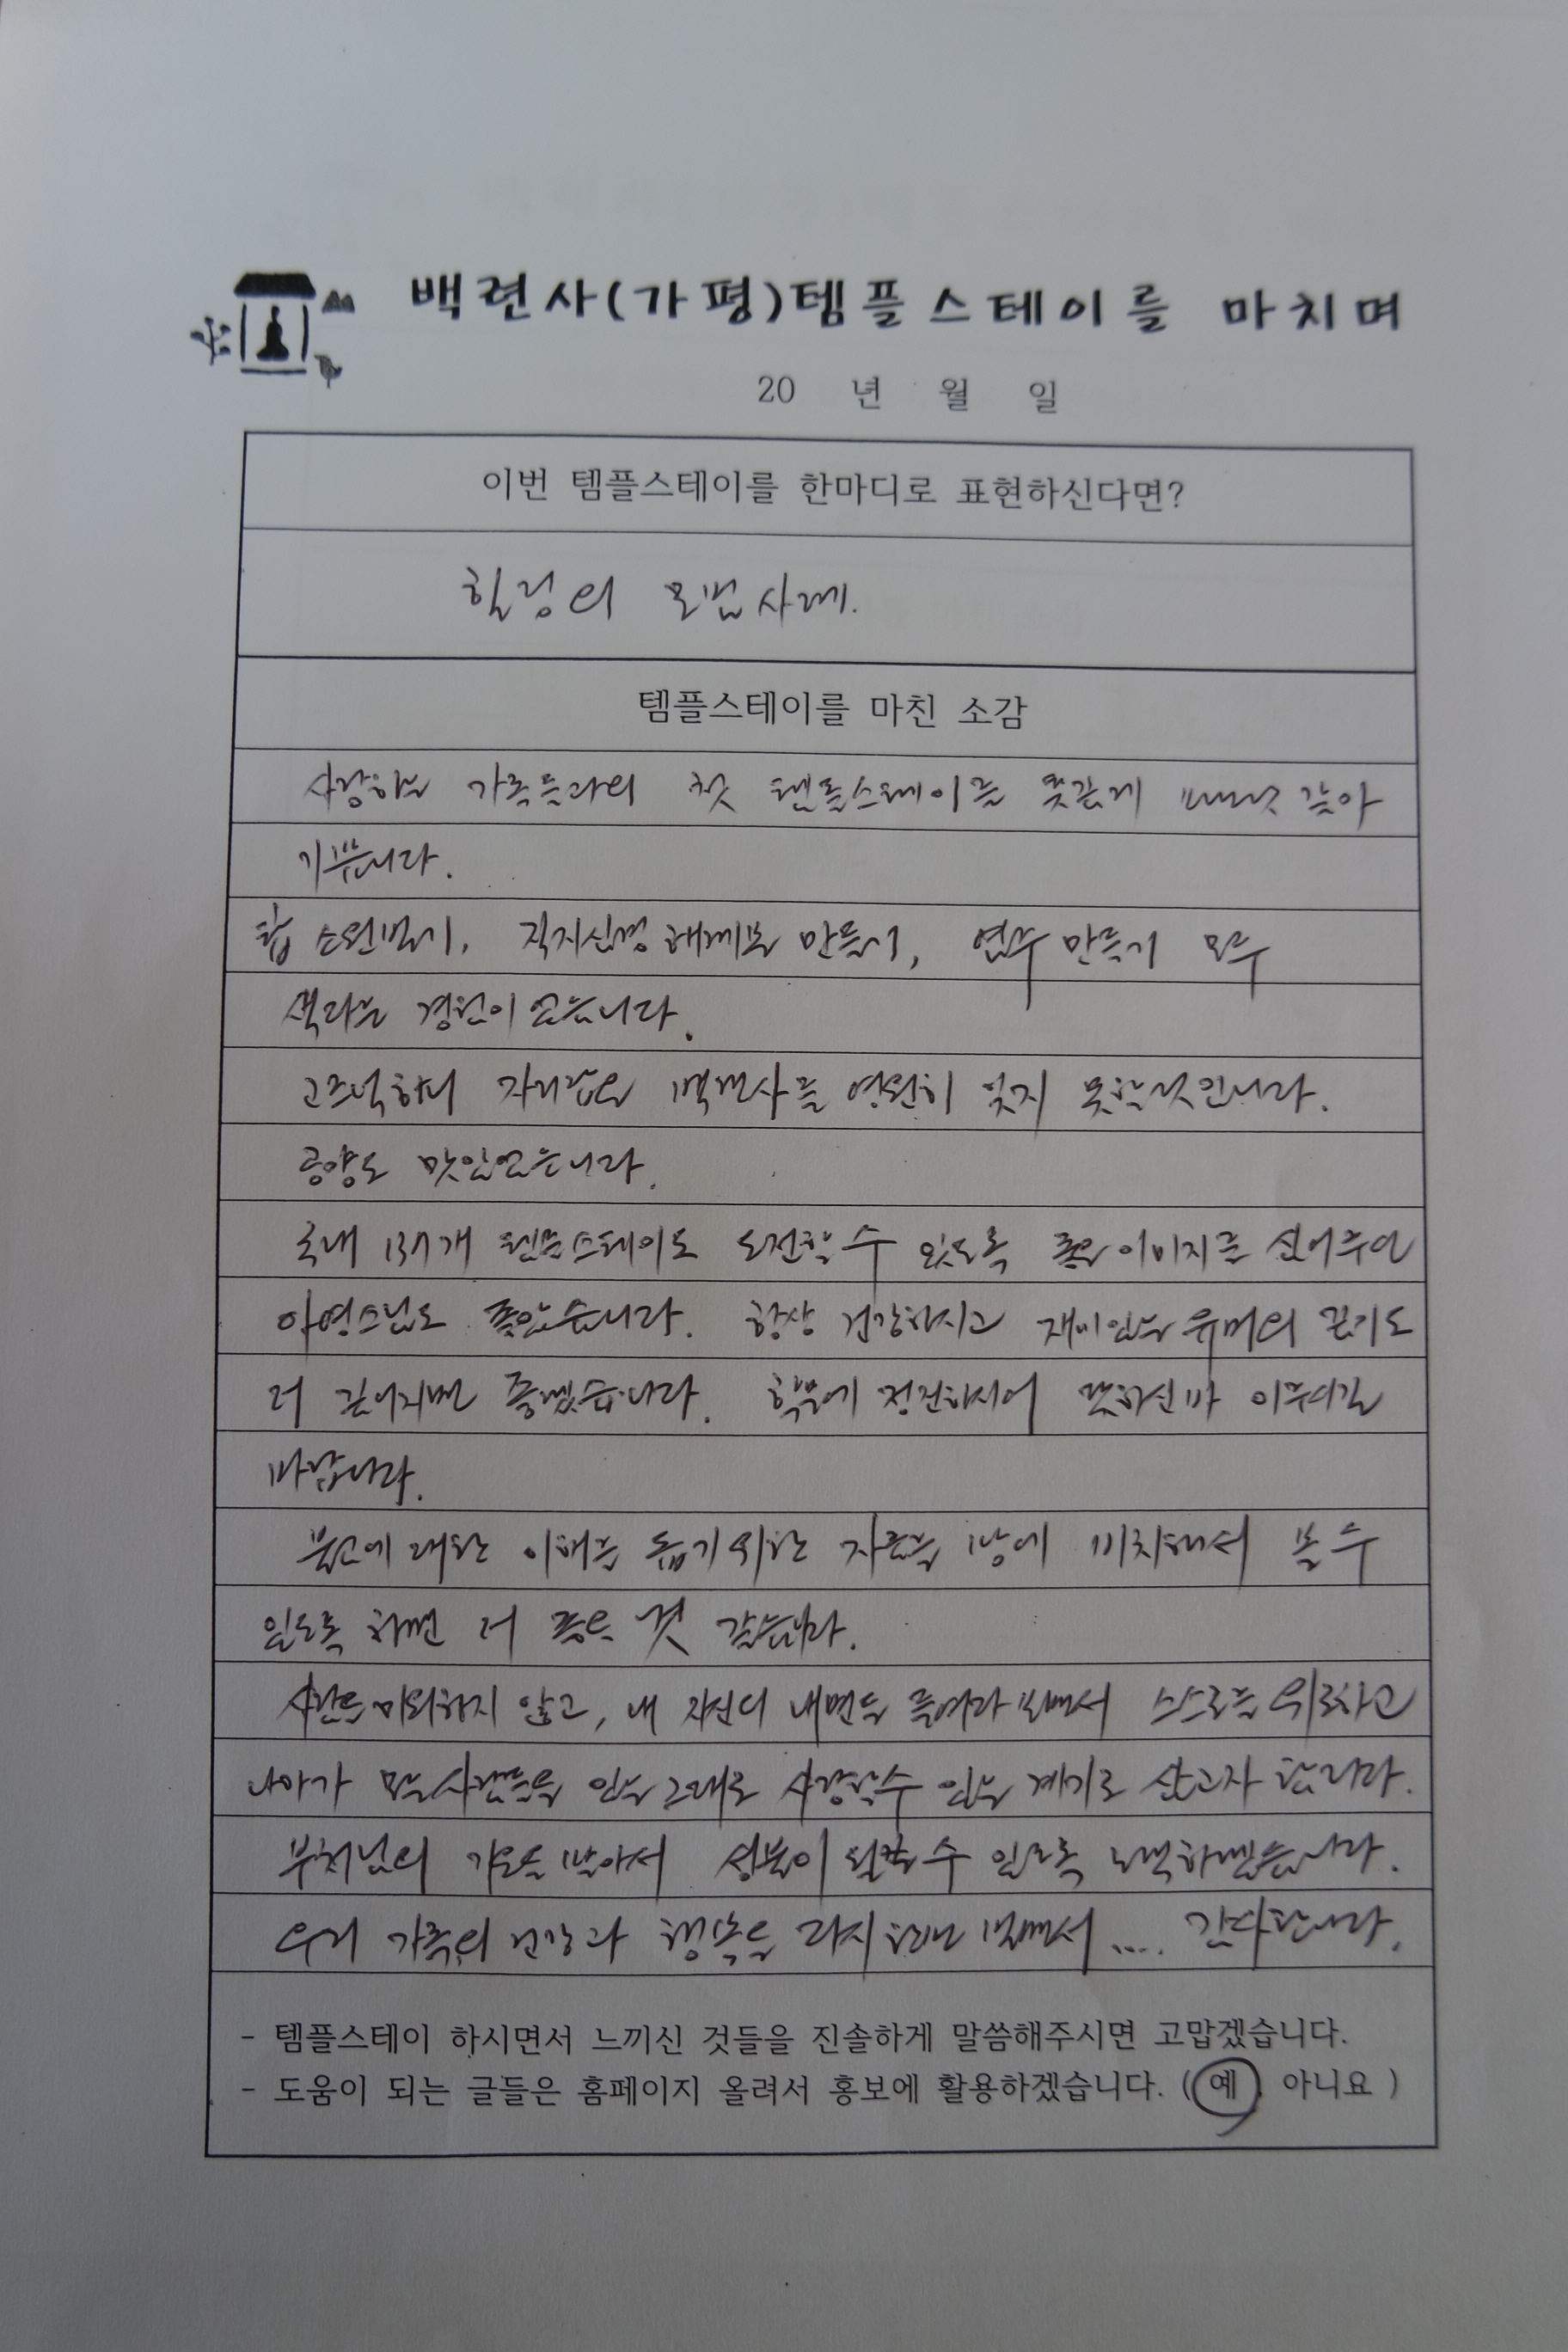 백련사(가평)템플스테이를 마치며
20 년 월 일
이번 템플스테이를 한마디로 표현하신다면?
힐링의 모범사례.
템플스테이를 마친 소감
사랑하는 가족들과의 첫 템플스테이를 뜻깊게 보낸것 같아
기쁩니다.
탑 소원빌기, 직지심경 만들기, 염주 만들기 모두
색다른 경험이었습니다.
고즈넉하니 자리잡은 백련사를 영원히 잊지 못할것입니다.
공양도 맛있었습니다.
국내 137개 템플스테이도 도전할 수 있도록 좋은 이미지를 심어주신
아영스님도 좋았습니다. 항상 건강하시고 재미있는 유머의 깊이도
더 깊어지면 좋겠습니다. 학문에 정진하시어 뜻하신바 이루시길
바랍니다.
불교에 대한 이해를 돕기위한 자료를 방에 비치해서 볼 수
있도록 하면 더 좋을 것 같습니다.
사람을 미워하지 않고, 내 자신의 내면을 들여다 보면서 스스로를 위로하고
나아가 모든사람들을 있는 그대로 사랑할수 있는 계기로 삼고자 합니다.
부처님의 가호를 받아서 성불이 될 수 있도록 노력하겠습니다.
우리 가족의 건강과 행복을 다시한번 빌면서 .... 감사합니다.
- 템플스테이 하시면서 느끼신 것들을 진솔하게 말씀해주시면 고맙겠습니다.
- 도움이 되는 글들은 홈페이지 올려서 홍보에 활용하겠습니다. (예, 아니요 )